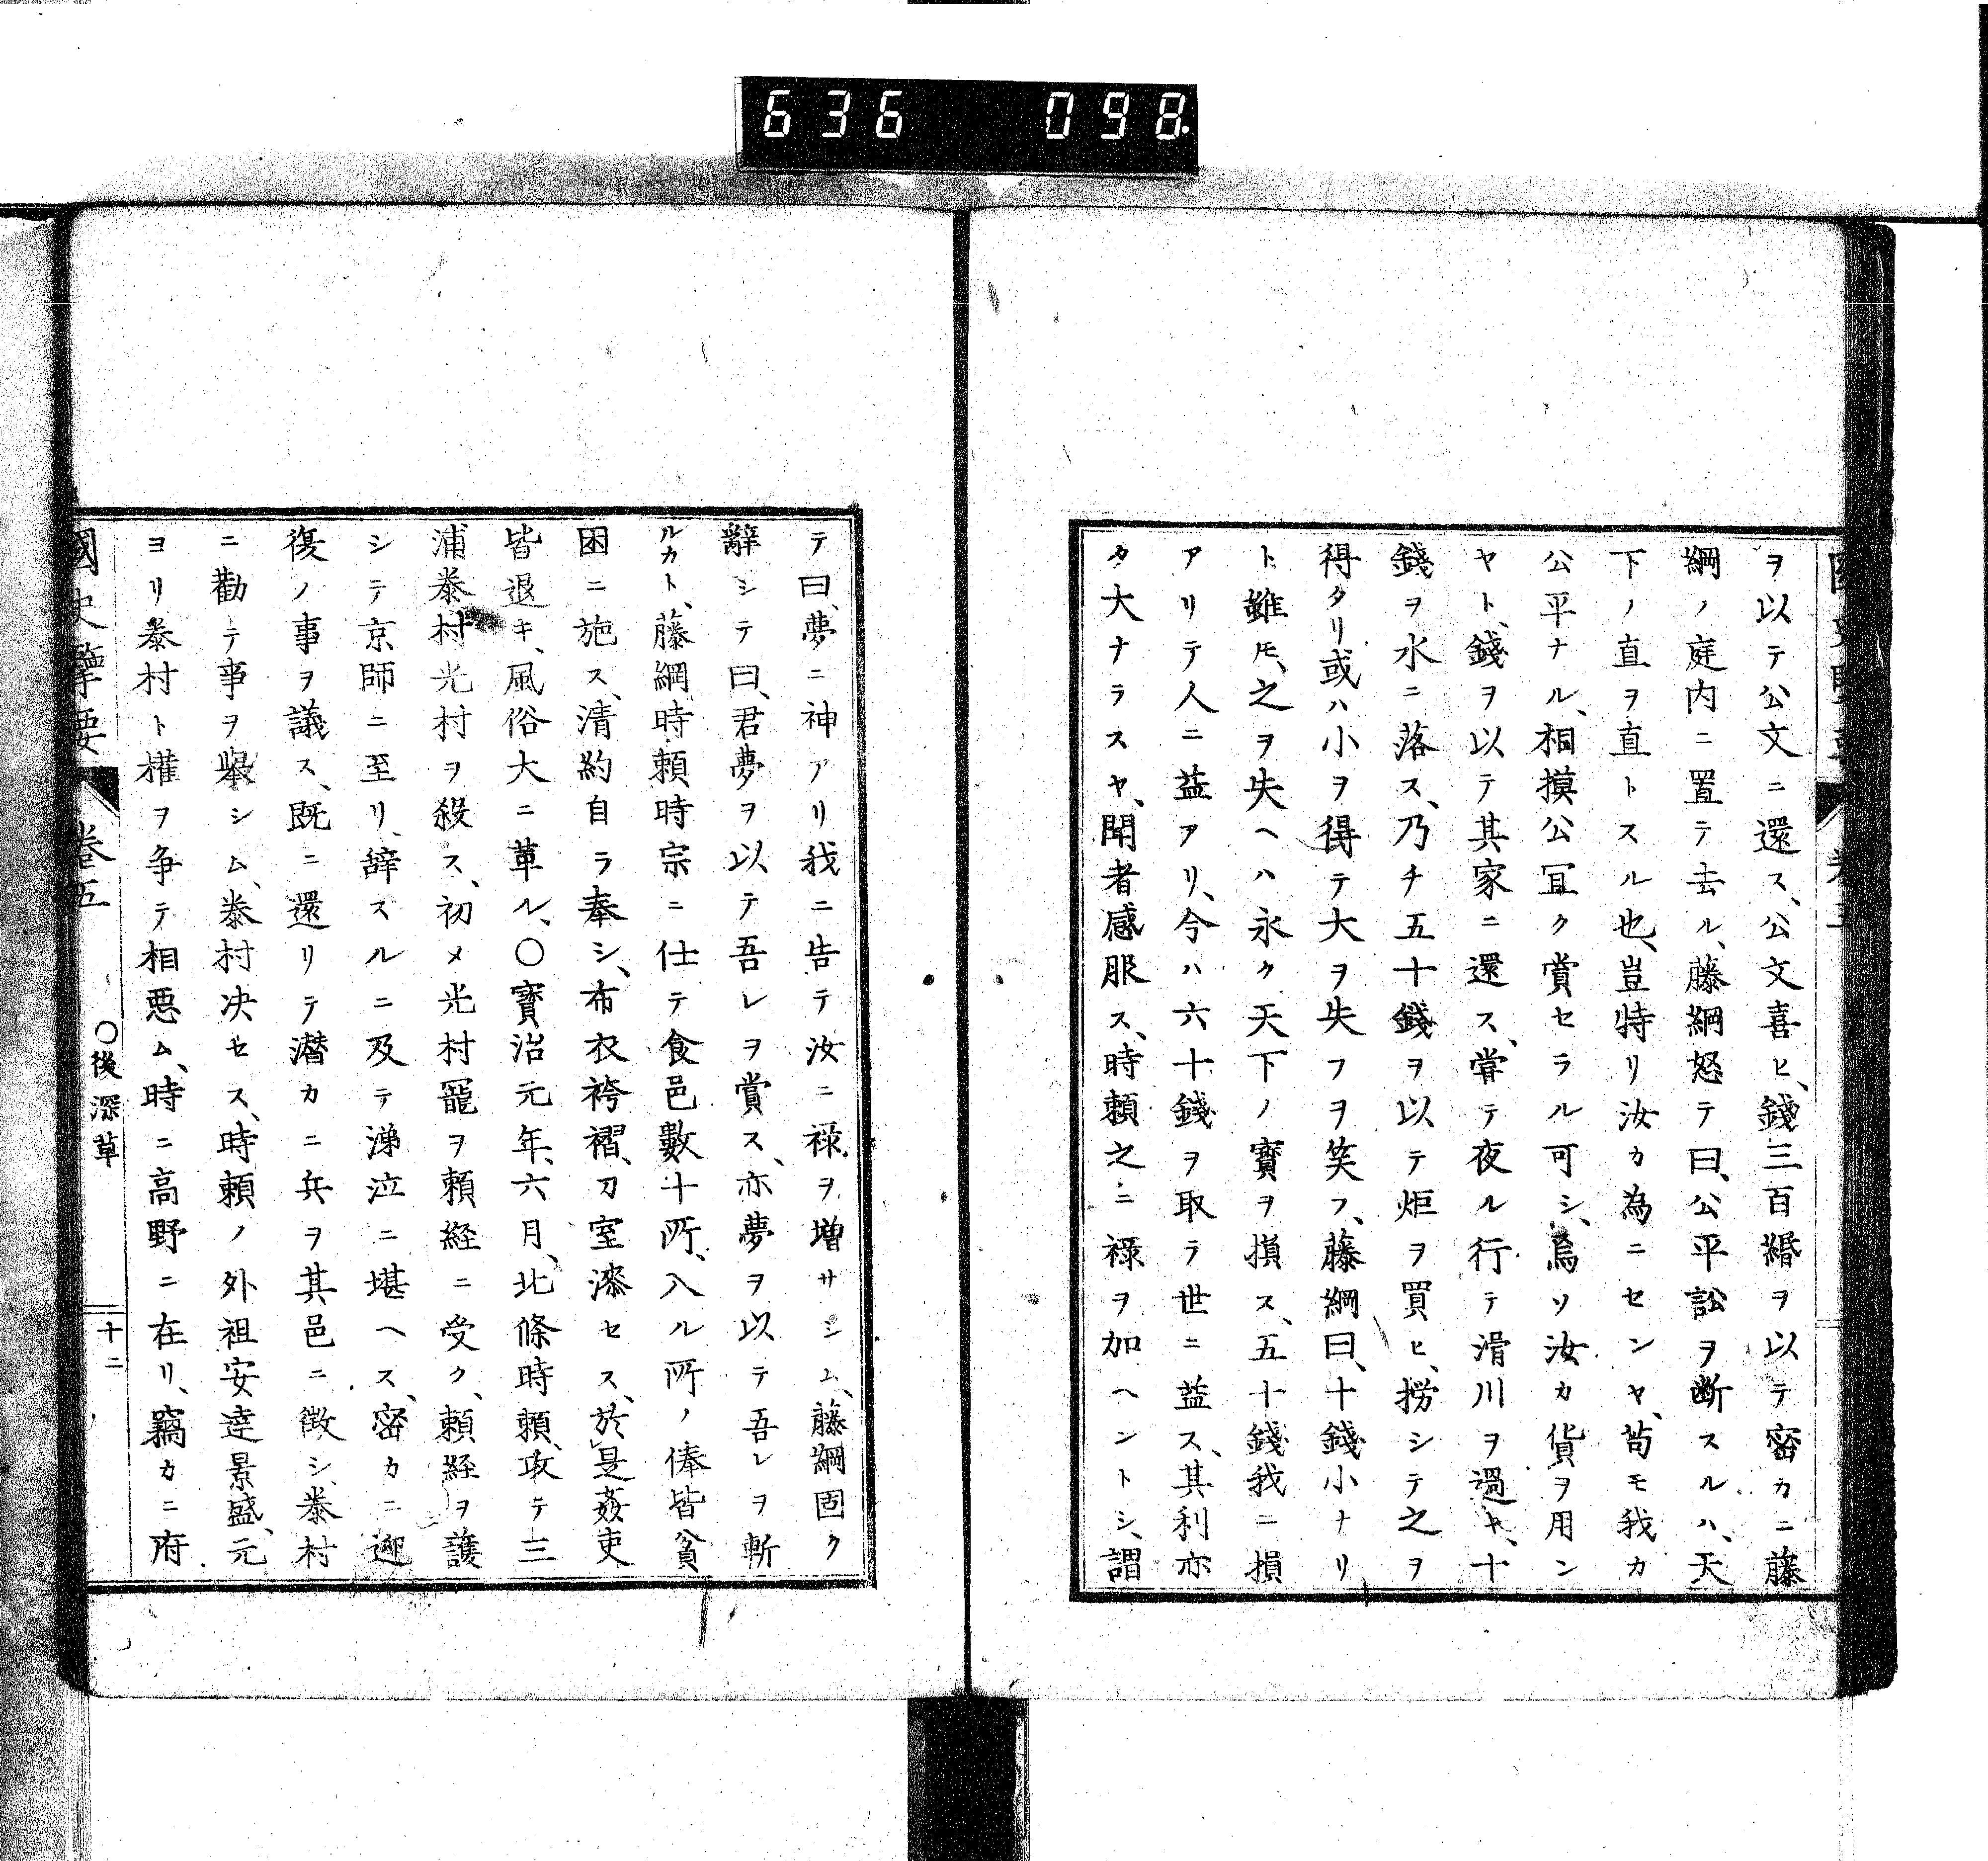 636 098
ヲ以テ公文ニ還ス、公文喜ヒ、錢三百緡ヲ以テ密カニ藤
綱ノ庭内ニ置テ去ル、藤綱怒テ曰、公平訟ヲ断スルハ、天
下ノ直ヲ直トスル也、豈特リ汝カ為ニセンヤ、苟モ我カ
公平ナル、相摸公冝ク賞セラル可シ、烏ソ汝カ貨ヲ用ン
ヤト、錢ヲ以テ其家ニ還ス、甞テ夜ル行テ滑川ヲ過キ、十
錢ヲ水ニ落ス、乃チ五十錢ヲ以テ炬ヲ買ヒ、撈シテ之ヲ
得タリ或ハ小ヲ得テ大ヲ失フヲ笑フ、藤綱曰、十錢小ナリ
ト雖𪜈、之ヲ失ヘハ永ク天下ノ寳ヲ損ス、五十錢我ニ損
アリテ人ニ益アリ、今ハ六十錢ヲ取テ世ニ益ス、其利亦
タ大ナラスヤ、聞者感服ス、時頼之ニ禄ヲ加ヘントシ、謂
テ曰、夢ニ神アリ我ニ告テ汝ニ禄ヲ増サシム、藤綱固ク
辭シテ曰、君夢ヲ以テ吾レヲ賞ス、亦夢ヲ以テ吾レヲ斬
ルカト、藤綱時頼時宗ニ仕テ食邑數十所、入ル所ノ俸皆貧
困ニ施ス、清約自ラ奉シ、布衣袴褶、刀室漆セス、於是姦吏
皆退キ、風俗大ニ革ル、〇寳治元年、六月、北條時頼、攻テ三
浦泰村光村ヲ殺ス、初メ光村寵ヲ頼経ニ受ク、頼経ヲ護
シテ京師ニ至リ、辭スルニ及テ涕泣ニ堪ヘス、密カニ迎
復ノ事ヲ議ス、既ニ還リテ潜カニ兵ヲ其邑ニ徴シ、泰村
ニ勸テ事ヲ擧シム、泰村决セス、時頼ノ外祖安達景盛、元
ヨリ泰村ト權ヲ争テ相悪ム、時ニ高野ニ在リ、竊カニ府
國史擥要 巻五 〇後深草 十二